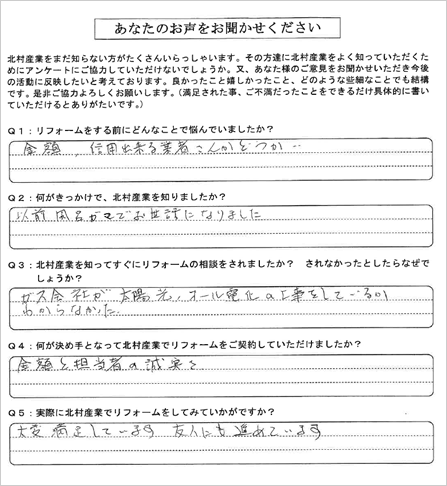 あなたのお声をお聞かせください
北村産業をまだ知らない方がたくさんいらっしゃいます。その方達に北村産業をよく知っていただくた
めにアンケートにご協力していただけないでしょうか。又、あなた様のご意見をお聞かせいただき今後
の活動に反映したいと考えております。良かったこと嬉しかったこと、どのような些細なことでも結構
です。是非ご協力よろしくお願いします。（満足された事、ご不満だったことをできるだけ具体的に書い
ていただけるとありがたいです。）
Ｑ１：リフォームをする前にどんなことで悩んでいましたか？
金額，信用出来る業者さんかどうか…
Ｑ２：何がきっかけで、北村産業を知りましたか？
以前 でお世話になりました
Ｑ３：北村産業を知ってすぐにリフォームの相談をされましたか？　されなかったとしたらなぜで
しょうか？
ガス会社が太陽光，オール電化の工事をしているか
わからなかった
Ｑ４：何が決め手となって北村産業でリフォームをご契約していただけましたか？
金額と担当者の誠実さ
Ｑ５：実際に北村産業でリフォームをしてみていかがですか？
大変満足しています　友人にも進めています